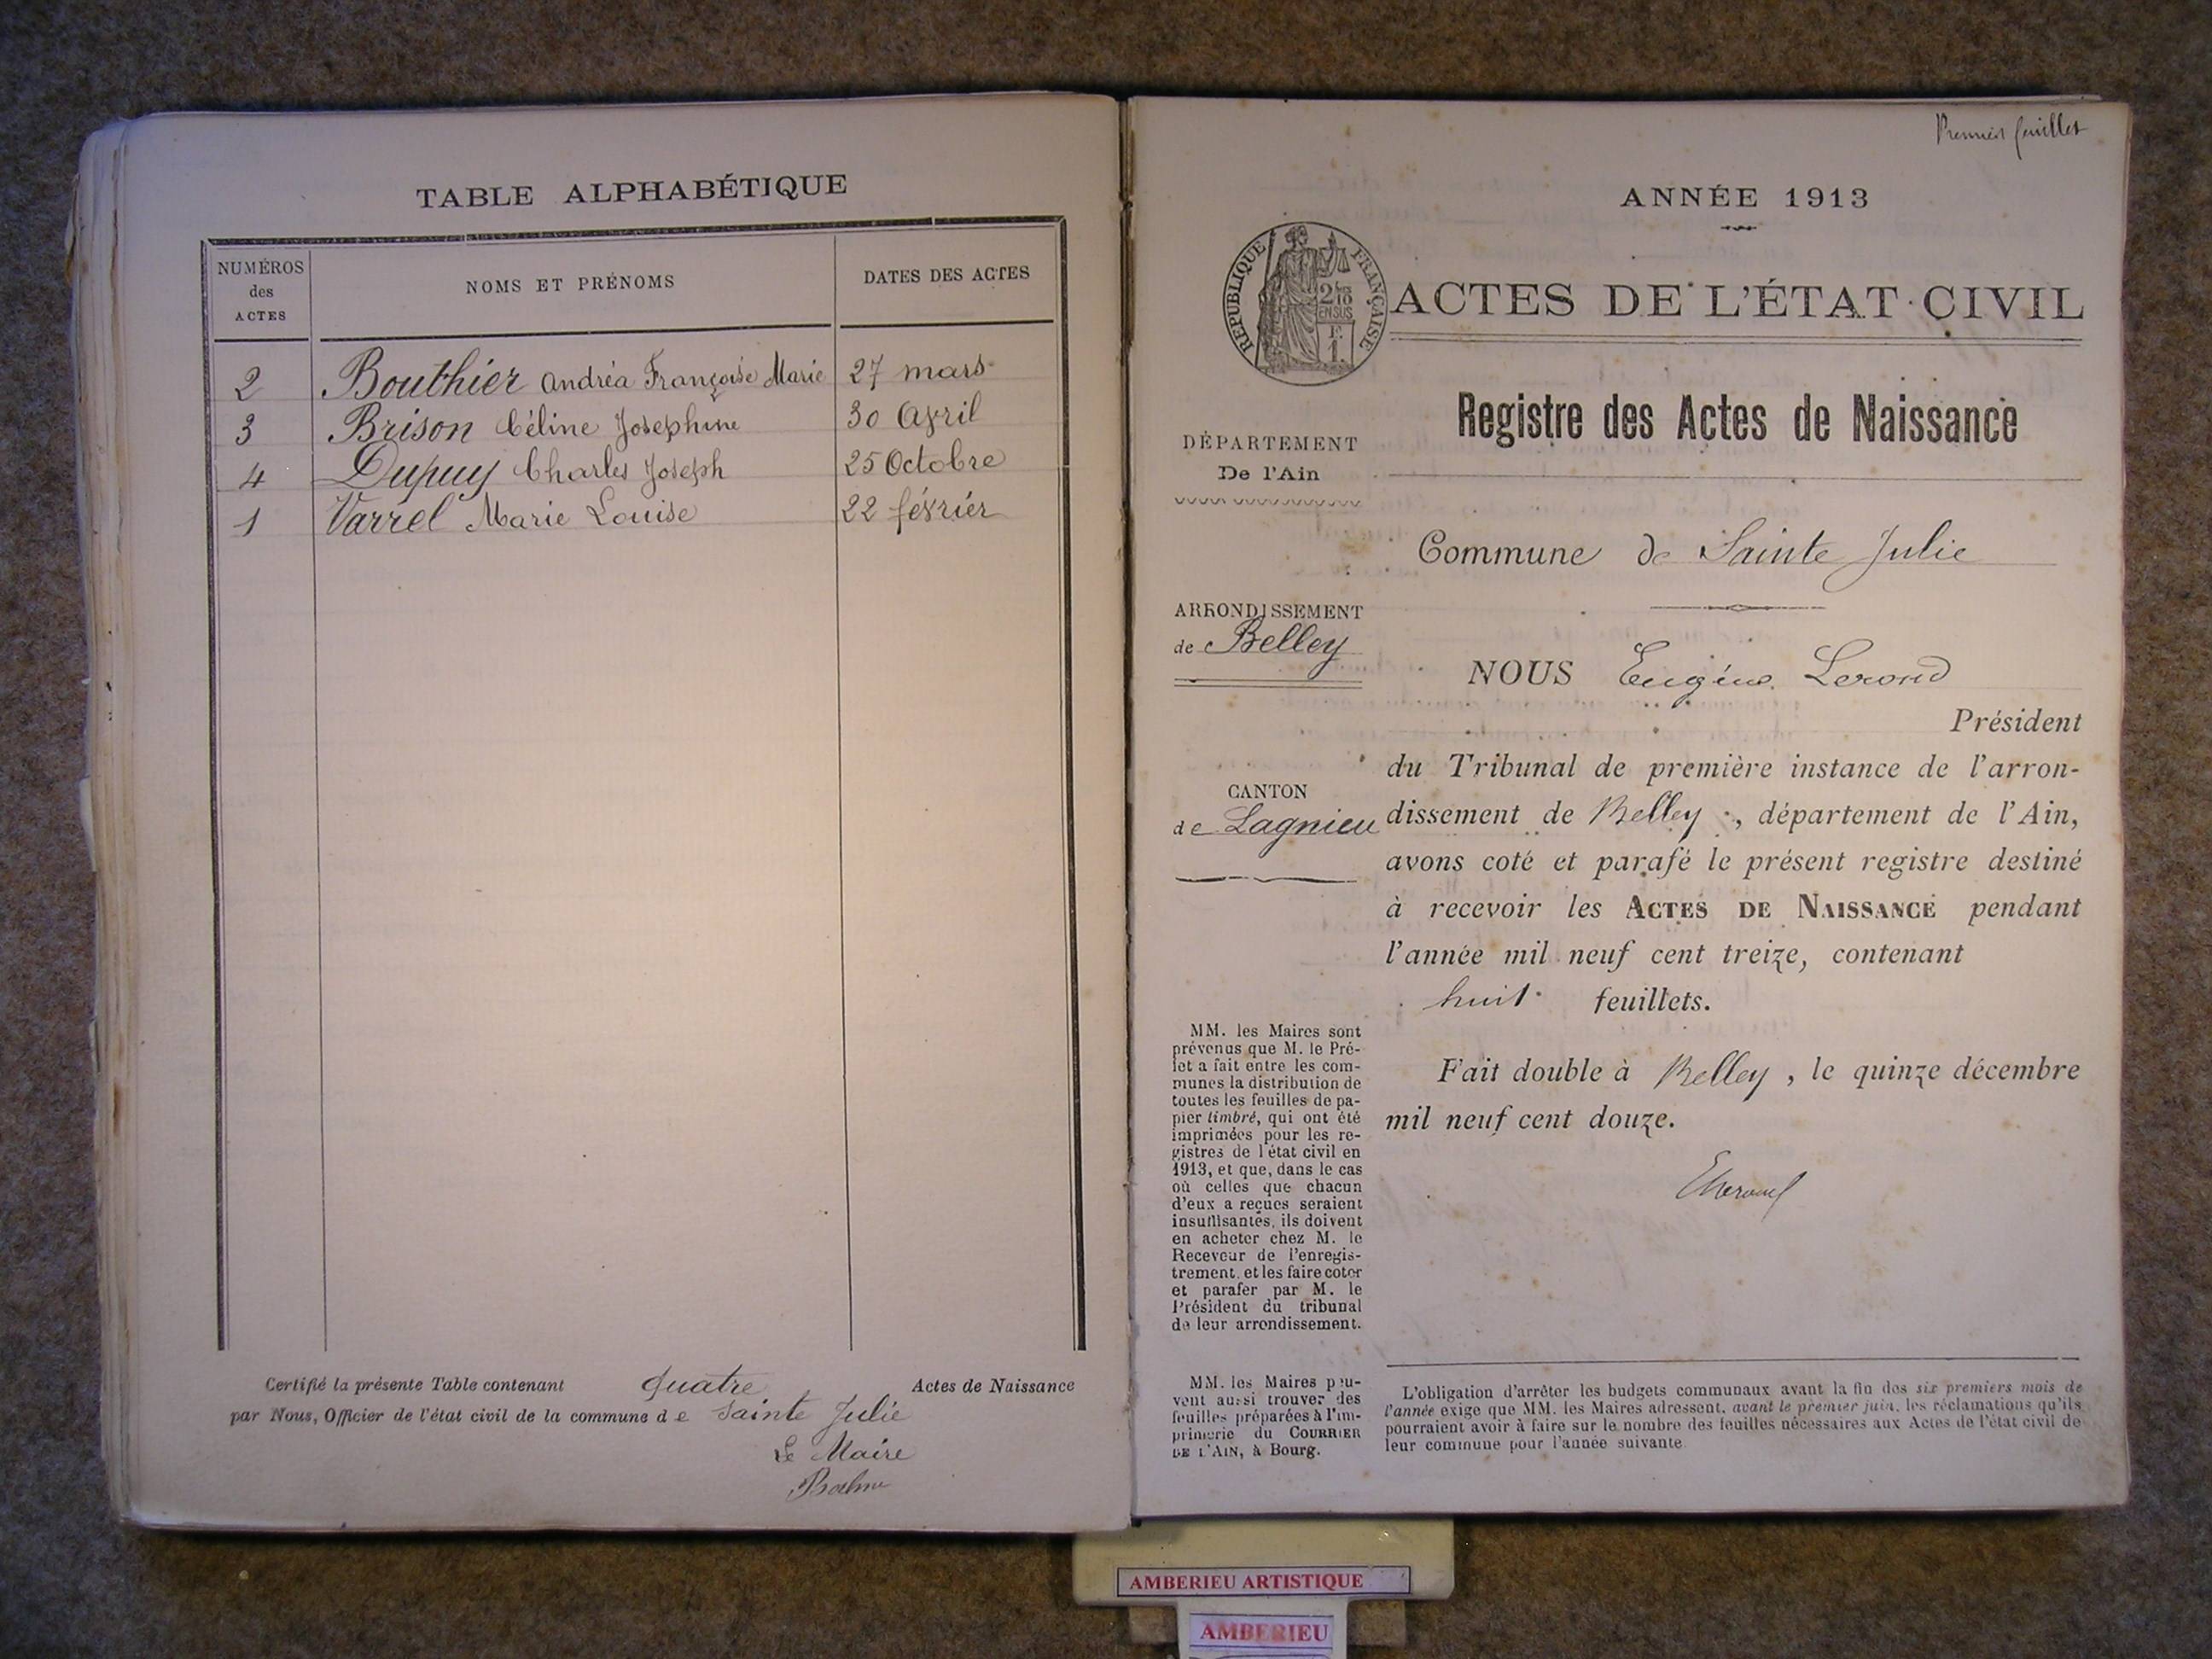 TABLE ALPHABÉTIQUE
NUMÉROS
des
ACTES
NOMS ET PRÉNOMS
DATES DES ACTES
2 Bouthier Andréa Françoise Marie 27 mars
3 Brison Céline Josephine 30 Avril
4 Dupuy Charles Joseph 25 Octobre
1 Varrel Marie Louise 22 février
Certifié la présente Table contenant quatre Actes de Naissance
par Nous, Officier de l'état civil de la commune de Sainte Julie
Le Maire
Premier feuillet
ANNÉE 1913
RÉPUBLIQUE FRANÇAISE
2/10
EN SUS
F.
1.
ACTES DE L'ÉTAT CIVIL
Registre des Actes de Naissance
DÉPARTEMENT
De l'Ain
Commune de Sainte Julie
ARRONDISSEMENT
de Belley
CANTON
de Lagnieu
NOUS Eugène Lerond
Président
du Tribunal de première instance de l'arron-
dissement de Belley, département de l'Ain,
avons coté et parafé le présent registre destiné
à recevoir les ACTES DE NAISSANCE pendant
l'année mil neuf cent treize, contenant
huit feuillets.
Fait double à Belley, le quinze décembre
mil neuf cent douze.
MM. les Maires sont
prévenus que M. le Pré-
fet a fait entre les com-
munes la distribution de
toutes les feuilles de pa-
pier timbré, qui ont été
imprimées pour les re-
gistres de l'état civil en
1913, et que, dans le cas
où celles que chacun
d'eux a reçues seraient
insuffisantes, ils doivent
en acheter chez M. le
Receveur de l'enregis-
trement, et les faire coter
et parafer par M. le
Président du tribunal
de leur arrondissement.
MM. les Maires peu-
vent aussi trouver des
feuilles préparées à l'im-
primerie du COURRIER
DE L'AIN, à Bourg.
L'obligation d'arrêter les budgets communaux avant la fin des six premiers mois de
l'année exige que MM. les Maires adressent, avant le premier juin, les réclamations qu'ils
pourraient avoir à faire sur le nombre des feuilles nécessaires aux Actes de l'état civil de
leur commune pour l'année suivante
AMBERIEU ARTISTIQUE
AMBERIEU